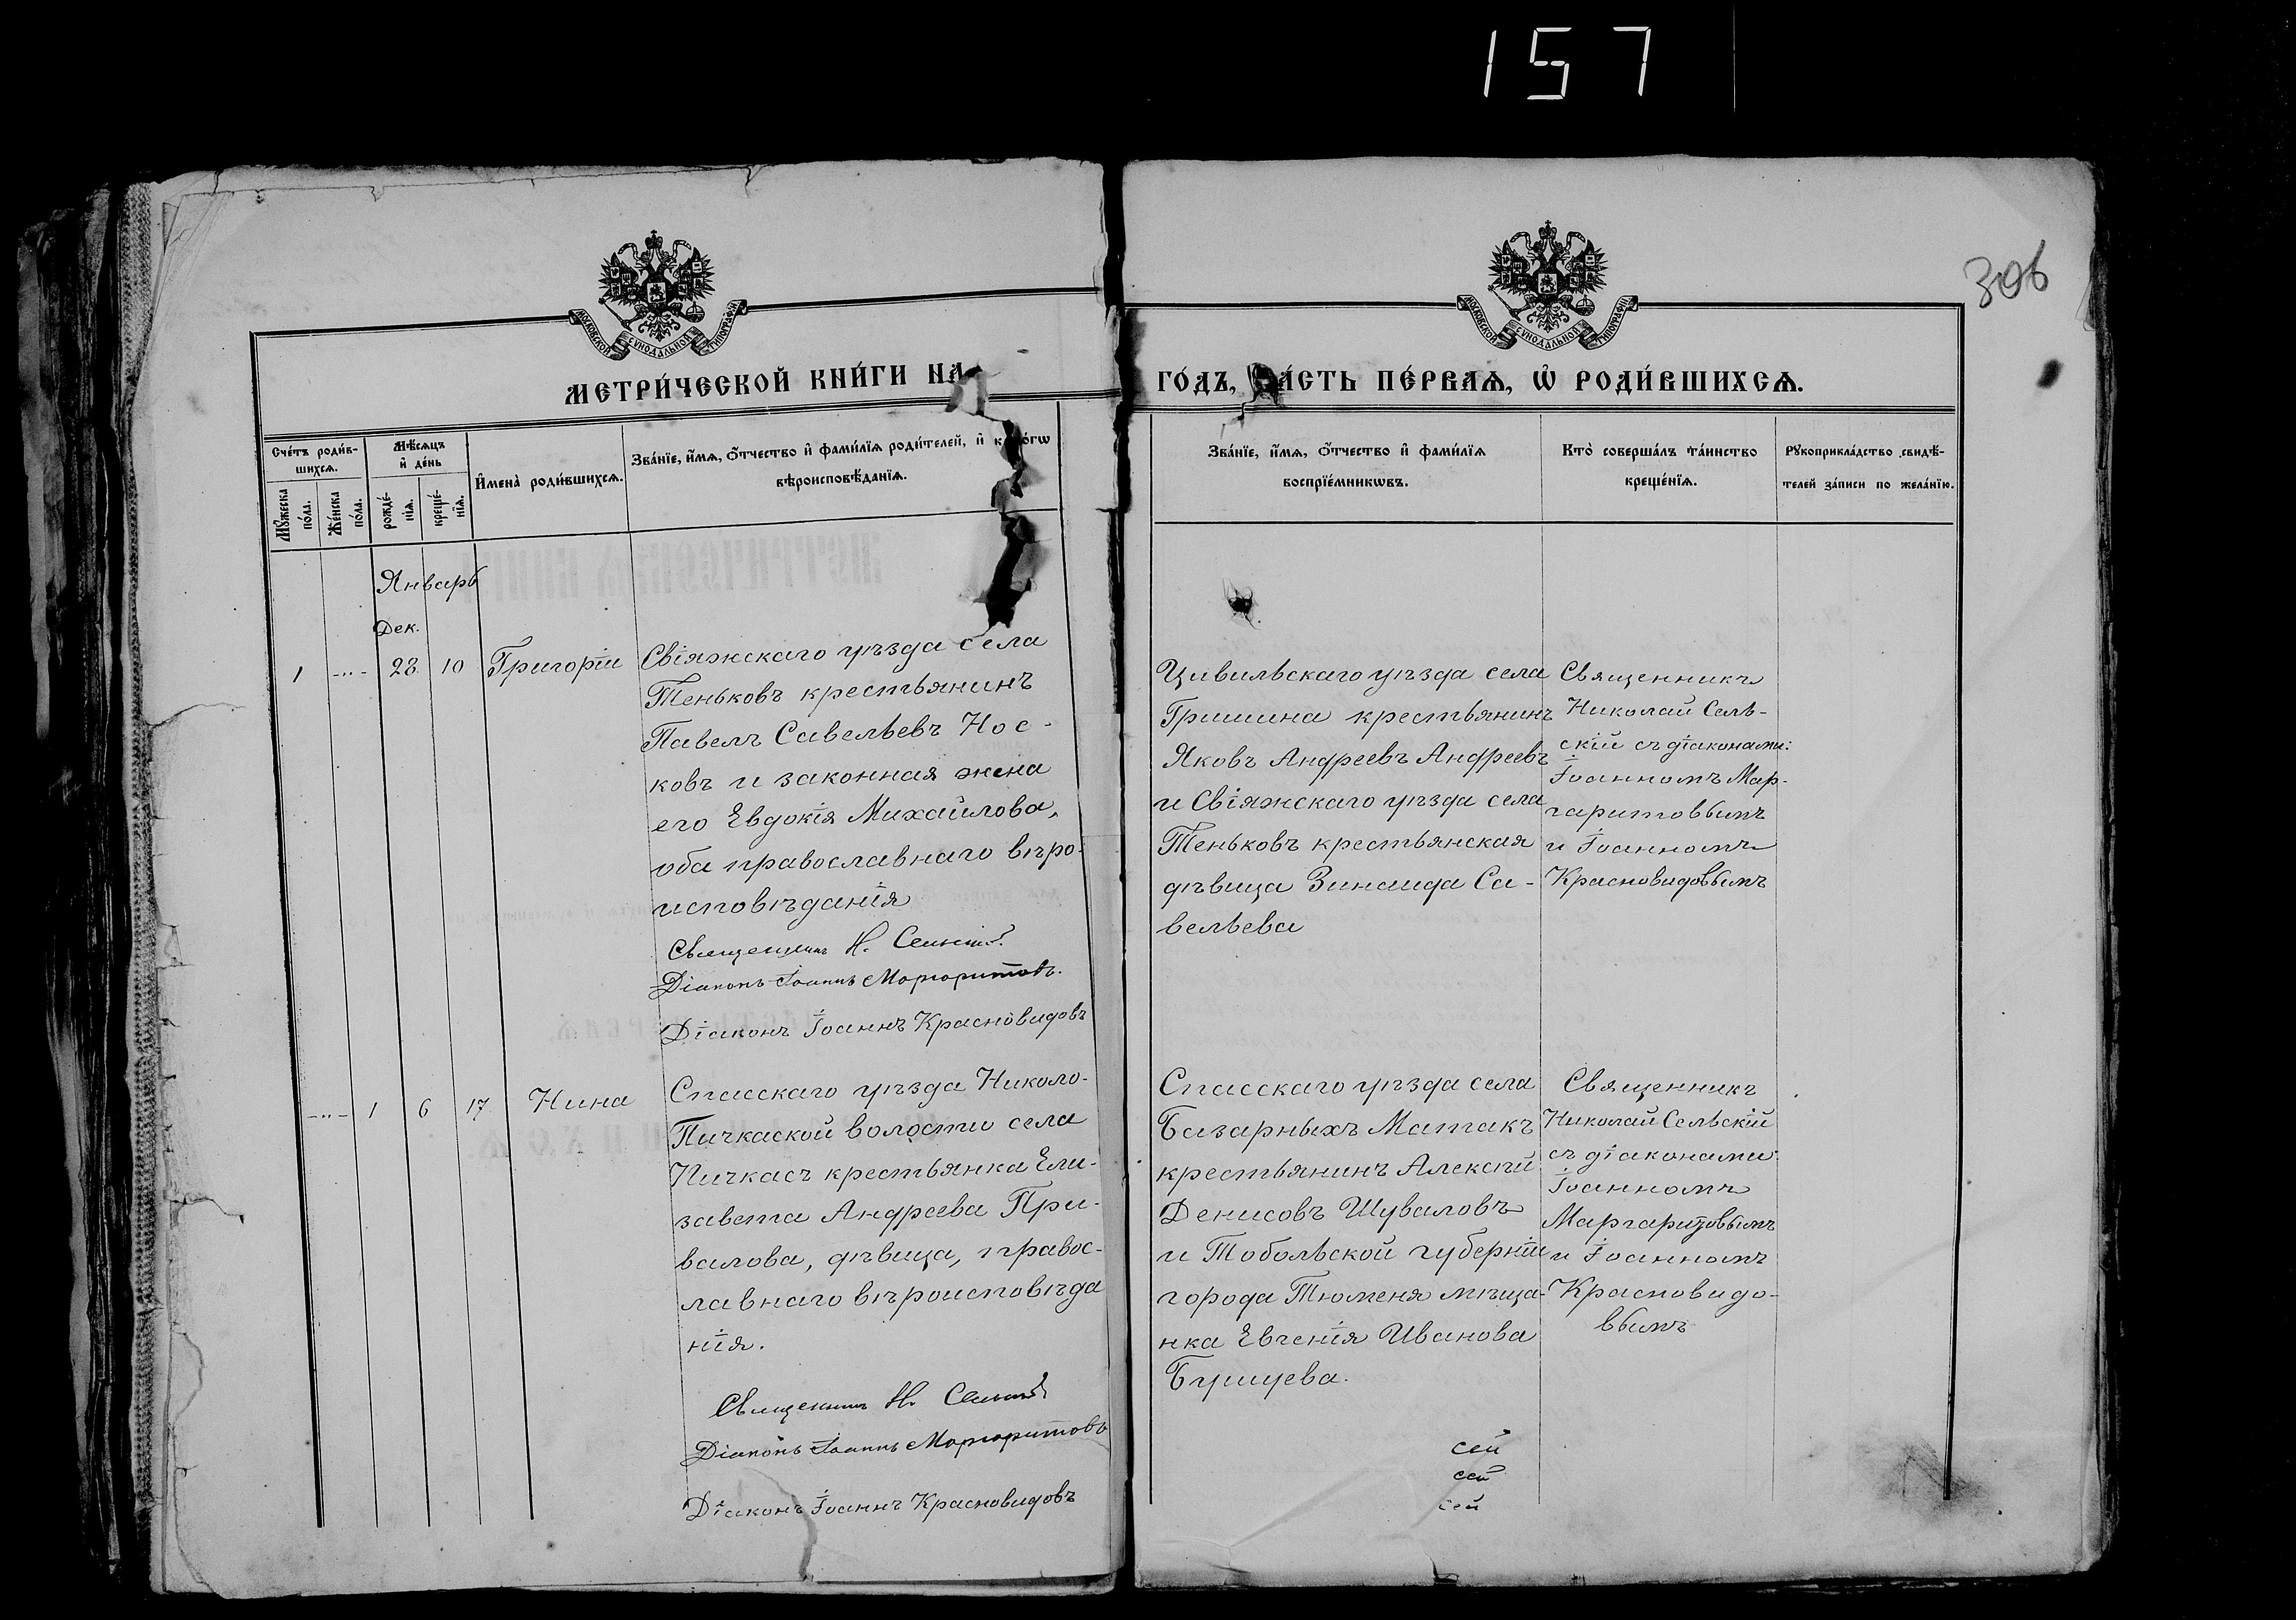 157
306
МОСКОВСКОЙ СѴНОДАЛЬНОЙ ТИПОГРАФІИ
МОСКОВСКОЙ СѴНОДАЛЬНОЙ ТИПОГРАФІИ
МЕТРИ́ЧЕСКОЙ КНИ́ГИ НА
ГО́ДЪ, ЧА́СТЬ ПЕ́РВАѦ, Ѡ҆ РОДИ́ВШИХСѦ.
Сче́тъ роди́в-
шихсѧ.
Мꙋ́жеска по́ла.
Же́нска по́ла.
Мѣ́сѧцъ
и҆ де́нь
рожде́-
нїѧ.
креще́-
нїѧ.
И҆мена̀ роди́вшихсѧ.
Зва́нїе, и҆́мѧ, ѻ҆́тчество и҆ фами́лїѧ роди́телей, и҆ ко́гѡ
вѣроисповѣ́данїѧ.
Зва́нїе, и҆́мѧ, ѻ҆́тчество и҆ фами́лїѧ
воспрїе́мникѡвъ.
Кто̀ соверша́лъ та́инство
креще́нїѧ.
Рꙋкоприкла́дство свидѣ́-
телей за́писи по жела́нїю.
Январь
Дек.
1 -"- 28 10 Григорій
Свіяжскаго уѣзда села
Теньковъ крестьянинъ
Павелъ Савельевъ Нос-
ковъ и законная жена
его Евдокія Михайлова,
оба православнаго вѣро-
исповѣданія
Священникъ Н. Сельскій.
Діаконъ Іоаннъ Маргаритовъ.
Діаконъ Іоаннъ Красновидовъ
Цивильскаго уѣзда села
Гришина крестьянинъ
Яковъ Андреевъ Андреевъ
и Свіяжскаго уѣзда села
Теньковъ крестьянская
дѣвица Зинаида Са-
вельева
Священникъ
Николай Сель-
скій съ діаконами:
Іоанномъ Мар-
гаритовымъ
и Іоанномъ
Красновидовымъ
-"- 1 6 17 Нина
Спасскаго уѣзда Николо-
Пичкаской волости села
Пичкасъ крестьянка Ели-
завета Андреева При-
валова, дѣвица, правос-
лавнаго вѣроисповѣда
нія.
Священникъ Н. Сельскій
Діаконъ Іоаннъ Маргаритовъ
Діаконъ Іоаннъ Красновидовъ
Спасскаго уѣзда села
Базарныхъ Матакъ
крестьянинъ Алексѣй
Денисовъ Шуваловъ
и Тобольской губерніи
города Тюменя мѣща-
нка Евгенія Иванова
Священникъ
Николай Сельскій
съ діаконами:
Іоанномъ
Маргаритовымъ
и Іоанномъ
Красновидо-
вымъ
сей
сей
сей